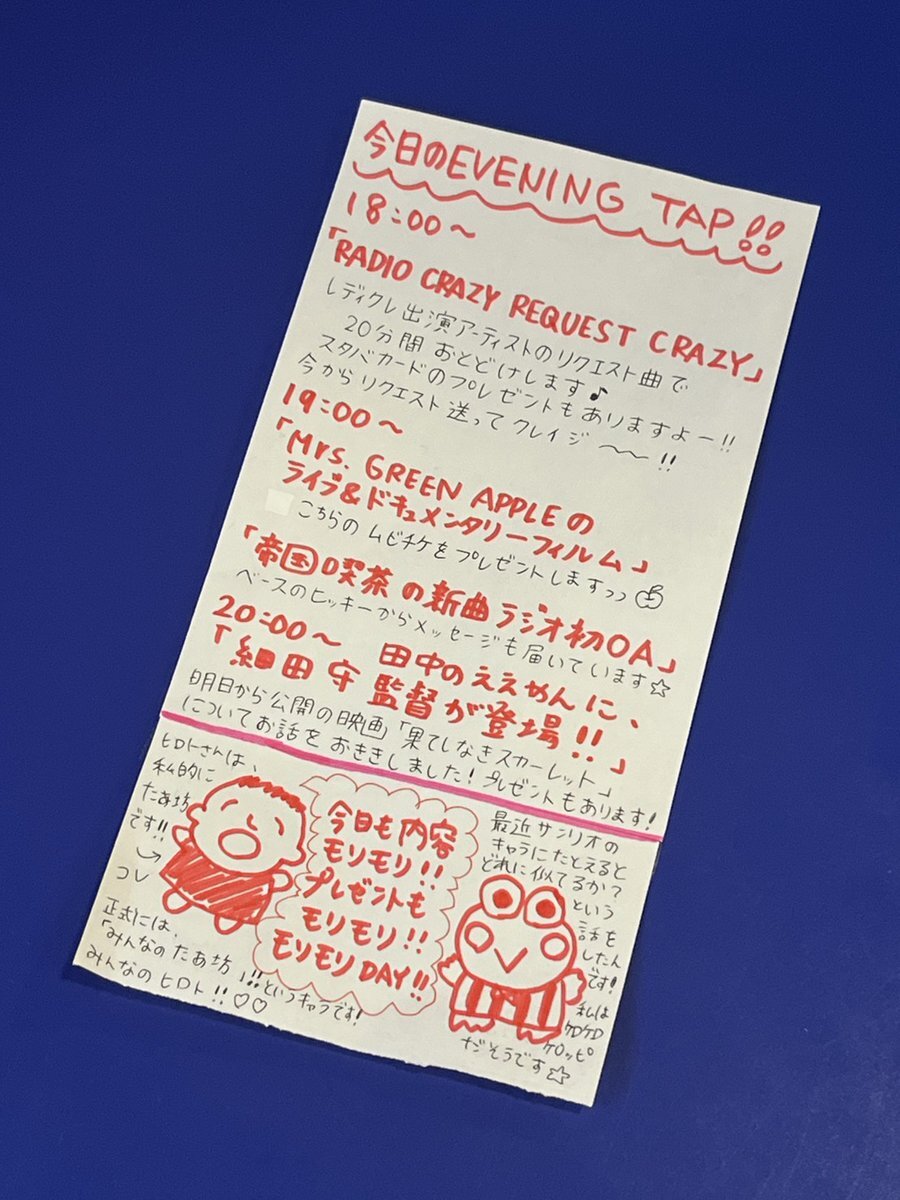 今日のEVENING TAP!!
18:00〜
「RADIO CRAZY REQUEST CRAZY」
レディクレ出演アーティストのリクエスト曲で
20分間おとどけします♪
スタバカードのプレゼントもありますよー!!
今からリクエスト送ってクレイジ〜〜!!
19:00〜
「Mrs. GREEN APPLEの
ライブ&ドキュメンタリーフィルム」
こちらのムビチケをプレゼントしますっっ
「帝国喫茶の新曲ラジオ初OA」
ベースのヒッキーからメッセージも届いています☆
20:00〜
「田中のええやんに、
細田守監督が登場!!」
明日から公開の映画「果てしなきスカーレット」
についてお話をおききしました!プレゼントもあります!
ヒロトさんは、
私的に
たあ坊
です!!
コレ
正式には、
「みんなのたあ坊」!!というキャラです!
みんなのヒロト!!♡♡
今日も内容
モリモリ!!
プレゼントも
モリモリ!!
モリモリDAY!!
最近サンリオの
キャラにたとえると
どれに似てるか?
という
話を
したん
です!
私は
ケロケロ
ケロッピ
だそうです☆